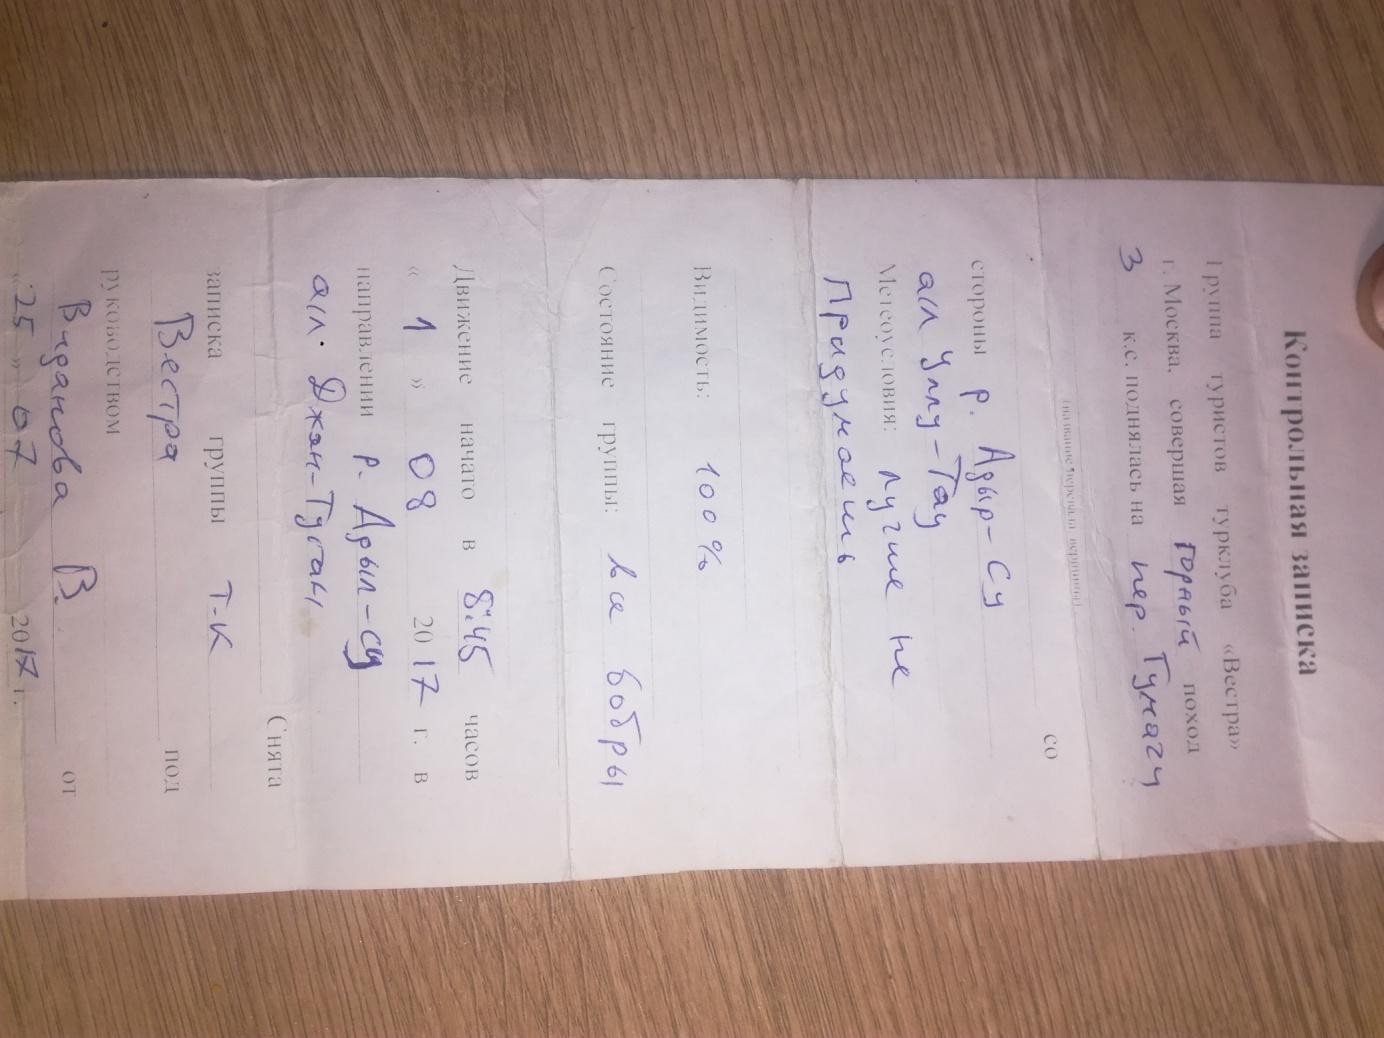 Контрольная записка
Группа туристов турклуба «Вестра»
г. Москва, совершая горный поход
3 к.с. поднялась на пер. Гумачи
со
(название перевала, вершины)
стороны р. Адыр-Су
а/л Уллу-Тау
Метеоусловия: лучше не
придумаешь
Видимость: 100%
Состояние группы: все бобры
Движение начато в 8:45 часов
« 1 » 08 2017 г. в
направлении р. Адыл-су
а/л. Джан-Туган
Снята
записка группы Т-К
Вестра под
руководством
В. от
«25» 07 2017 г.